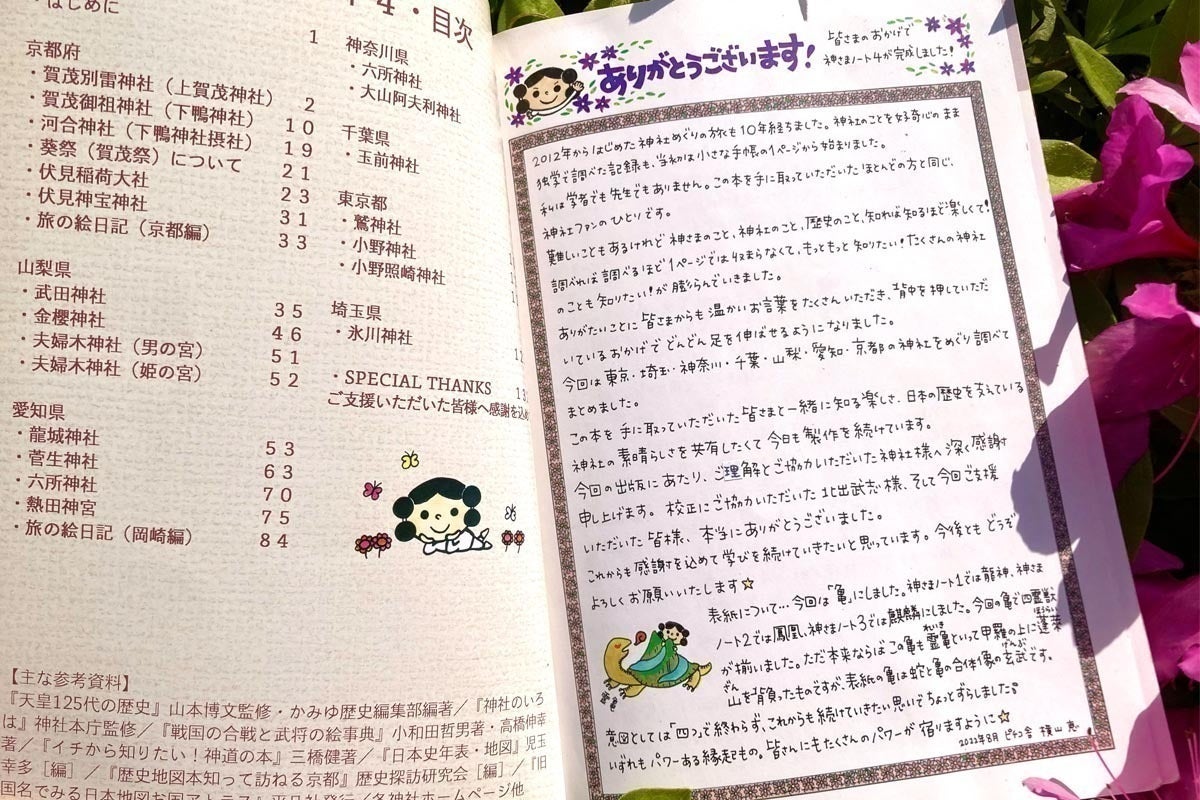 はじめに
1
4・目次
京都府
・賀茂別雷神社(上賀茂神社) 2
・賀茂御祖神社(下鴨神社) 10
・河合神社(下鴨神社摂社) 19
・葵祭(賀茂祭)について 21
・伏見稲荷大社 23
・伏見神宝神社 31
・旅の絵日記(京都編) 33
山梨県
・武田神社 35
・金櫻神社 46
・夫婦木神社(男の宮) 51
・夫婦木神社(姫の宮) 52
愛知県
・龍城神社 53
・菅生神社 63
・六所神社 70
・熱田神宮 75
・旅の絵日記(岡崎編) 84
神奈川県
・六所神社
・大山阿夫利神社
千葉県
・玉前神社
東京都
・鷲神社
・小野神社
・小野照崎神社
埼玉県
・氷川神社
・SPECIAL THANKS
ご支援いただいた皆様へ感謝を込め
【主な参考資料】
『天皇125代の歴史』山本博文監修・かみゆ歴史編集部編著/『神社のいろ
は』神社本庁監修/『戦国の合戦と武将の絵事典』小和田哲男著・高橋伸幸
著/『イチから知りたい!神道の本』三橋健著/『日本史年表・地図』児玉
幸多[編]/『歴史地図本知って訪ねる京都』歴史探訪研究会[編]/『旧
国名でみる日本地図お国アトラス』平凡社発行/各神社ホームページ他
ありがとうございます!
皆さまのおかげで
神さまノート4が完成しました!
2012年からはじめた神社めぐりの旅も10年経ちました。神社のことを好奇心のまま
独学で調べた記録も、当初は小さな手帳の1ページから始まりました。
私は学者でも先生でもありません。この本を手に取っていただいたほとんどの方と同じ、
神社ファンのひとりです。
難しいこともあるけれど 神さまのこと、神社のこと、歴史のこと、知れば知るほど楽しくて!
調べれば調べるほど1ページでは収まらなくて、もっともっと知りたい!たくさんの神社
のことも知りたい!が膨らんでいきました。
ありがたいことに皆さまからも温かいお言葉をたくさんいただき、背中を押していただ
いているおかげでどんどん足を伸ばせるようになりました。
今回は東京・埼玉・神奈川・千葉・山梨・愛知・京都の神社をめぐり調べて
まとめました。
この本を手に取っていただいた皆さまと一緒に知る楽しさ、日本の歴史を支えている
神社の素晴らしさを共有したくて今日も製作を続けています。
今回の出版にあたり、ご理解とご協力いただいた神社様へ深く感謝
申し上げます。校正にご協力いただいた北出武志様、そして今回ご支援
いただいた皆様、本当にありがとうございました。
これからも感謝を込めて学びを続けていきたいと思っています。今後ともどうぞ
よろしくお願いいたします☆
表紙について…今回は「亀」にしました。神さまノート1では龍神、神さま
ノート2では鳳凰、神さまノート3では麒麟にしました。今回の亀で四霊獣
が揃いました。ただ本来ならばこの亀も霊亀といって甲羅の上に蓬莱
れいき
ほうらい
山を背負ったものですが、表紙の亀は蛇と亀の合体像の玄武です。
ざん
げんぶ
意図としては「四つ」で終わらず、これからも続けていきたい思いでちょっとずらしました。
いずれもパワーある縁起もの。皆さんにもたくさんのパワーが宿りますように☆
2022年8月 横山 恵